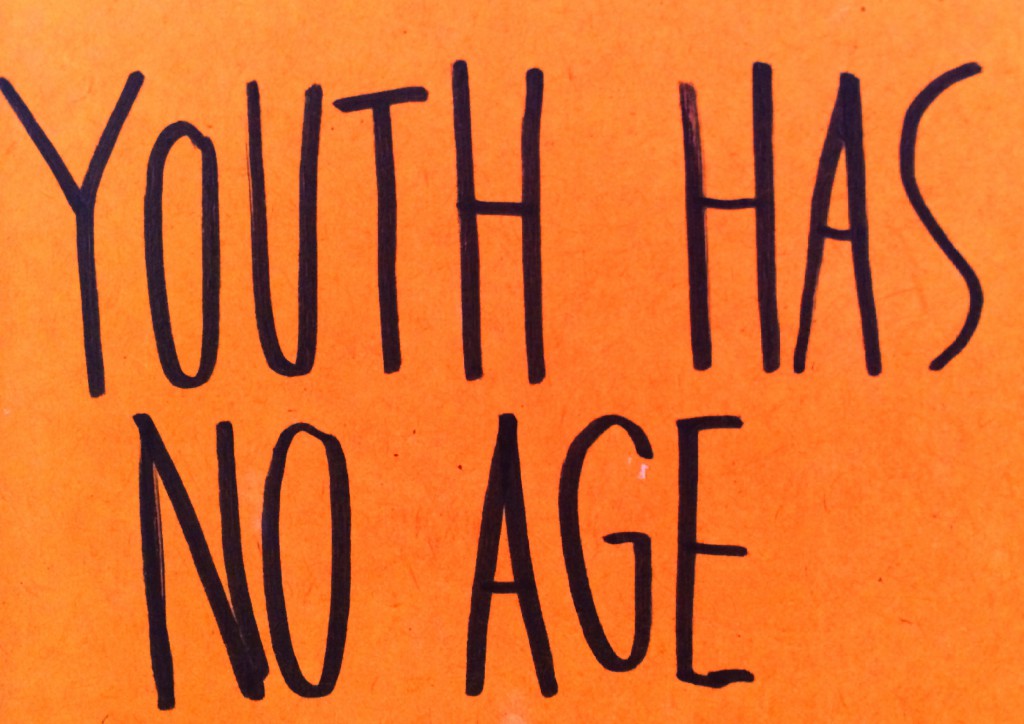 YOUTH HAS
NO AGE